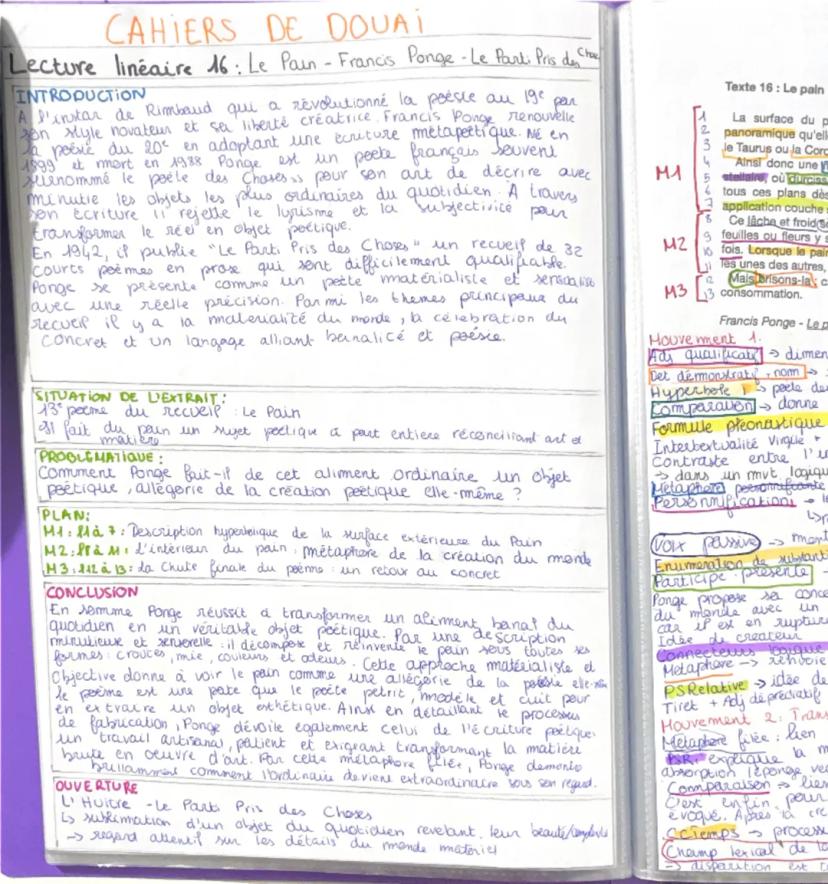 CAHIERS DE DOUAI
Lecture linéaire 16 : Le Pain - Francis Ponge - Le Parti Pris des Choses
INTRODUCTION
A l'instar de Rimbaud qui a révolutionné la poésie au 19e par
son style novateur et sa liberté créatrice. Francis Ponge renouvelle
la poésie du 20e en adoptant une écriture métapoétique. Né en
1899 et mort en 1988 Ponge est un poète français souvent
surnommé le poète des Choses >> pour son art de décrire avec
minutie les objets les plus ordinaires du quotidien. A travers
son écriture il rejette le lyrisme et la subjectivité pour
transformer le réel en objet poétique.
En 1942, il publie "Le Parti Pris des Choses" un recueil de 32
courts poèmes en prose qui sont difficilement qualifiable.
Ponge se présente comme un poète matérialiste et
avec une réelle précision. Parmi les thèmes principaux du
recueil il y a la matérialité du monde, la célébration du
concret et un langage alliant banalité et poésie.
SITUATION DE L'EXTRAIT :
13e poème du recueil : Le Pain
Il fait du pain un sujet poétique à part entière réconciliant art et
matière
PROBLÉMATIQUE :
Comment Ponge fait-il de cet aliment ordinaire un objet
poétique, allégorie de la création poétique elle-même ?
PLAN :
M1 : l1 à 7 : Description hyperbolique de la surface extérieure du Pain
M2 : l8 à 11 : l'intérieur du pain : métaphore de la création du monde
M3 : l12 à 13 : la Chute finale du poème : un retour au concret
CONCLUSION
En somme Ponge réussit à transformer un aliment banal du
quotidien en un véritable objet poétique. Par une description
minutieuse et sensorielle : il décompose et réinvente le pain sous toutes ses
formes : croûtes, mie, couleurs et odeurs. Cette approche matérialiste et
Objective donne à voir le pain comme une allégorie de la poésie elle-même
le poème est une pate que le poète petrit, modèle et cuit pour
en extraire un objet esthétique. Ainsi en détaillant le processus
de fabrication, Ponge dévoile également celui de l'écriture poétique
un travail artisanal, patient et exigeant transformant la matière
brute en oeuvre d'art. Par cette métaphore filée, Ponge démontre
brillamment comment l'ordinaire devient extraordinaire sous son regard.
OUVERTURE
L'Huitre - Le Parti Pris des Choses
↳ sublimation d'un objet du quotidien revelant leur beauté/
→ regard attentif sur les détails du monde matériel
Texte 16 : Le pain
M1
1 La surface du
2 panoramique qu'ell
3 le Taurus ou la
4 Ainsi donc une
5 stellaire, où
6 tous ces plans dès
7 application couche
M2
8 Ce lâche et froid
9 feuilles ou fleurs y
10 fois. Lorsque le pain
11 les unes des autres,
M3
12 Mais brisons-la :
13 consommation.
Francis Ponge - Le
Mouvement 1.
Adj qualificatif →
Det démonstratif, nom →
Hyperbole → poete
Comparaison → donne
Formule pléonastique
Intertextualité Virgile +
Contraste entre
→ dans un mvt logique
Métaphore personnifiante
Personnification →
Voix passive →
Enumeration de
Participe présente
Ponge propose sa
du monde avec un
car il est en rupture
Idée de créateur
Connecteurs logique
Métaphore → renvoie
PSRelative → idée de
Tiret + Adj dépréciatif
Mouvement 2 :
Métaphore filée : lien
PSR : explique la
absorption l'éponge
Comparaison → lien
C'est enfin pour
évoqué. Après la
CCTemps → processu
Champ lexical de
→ disparition est